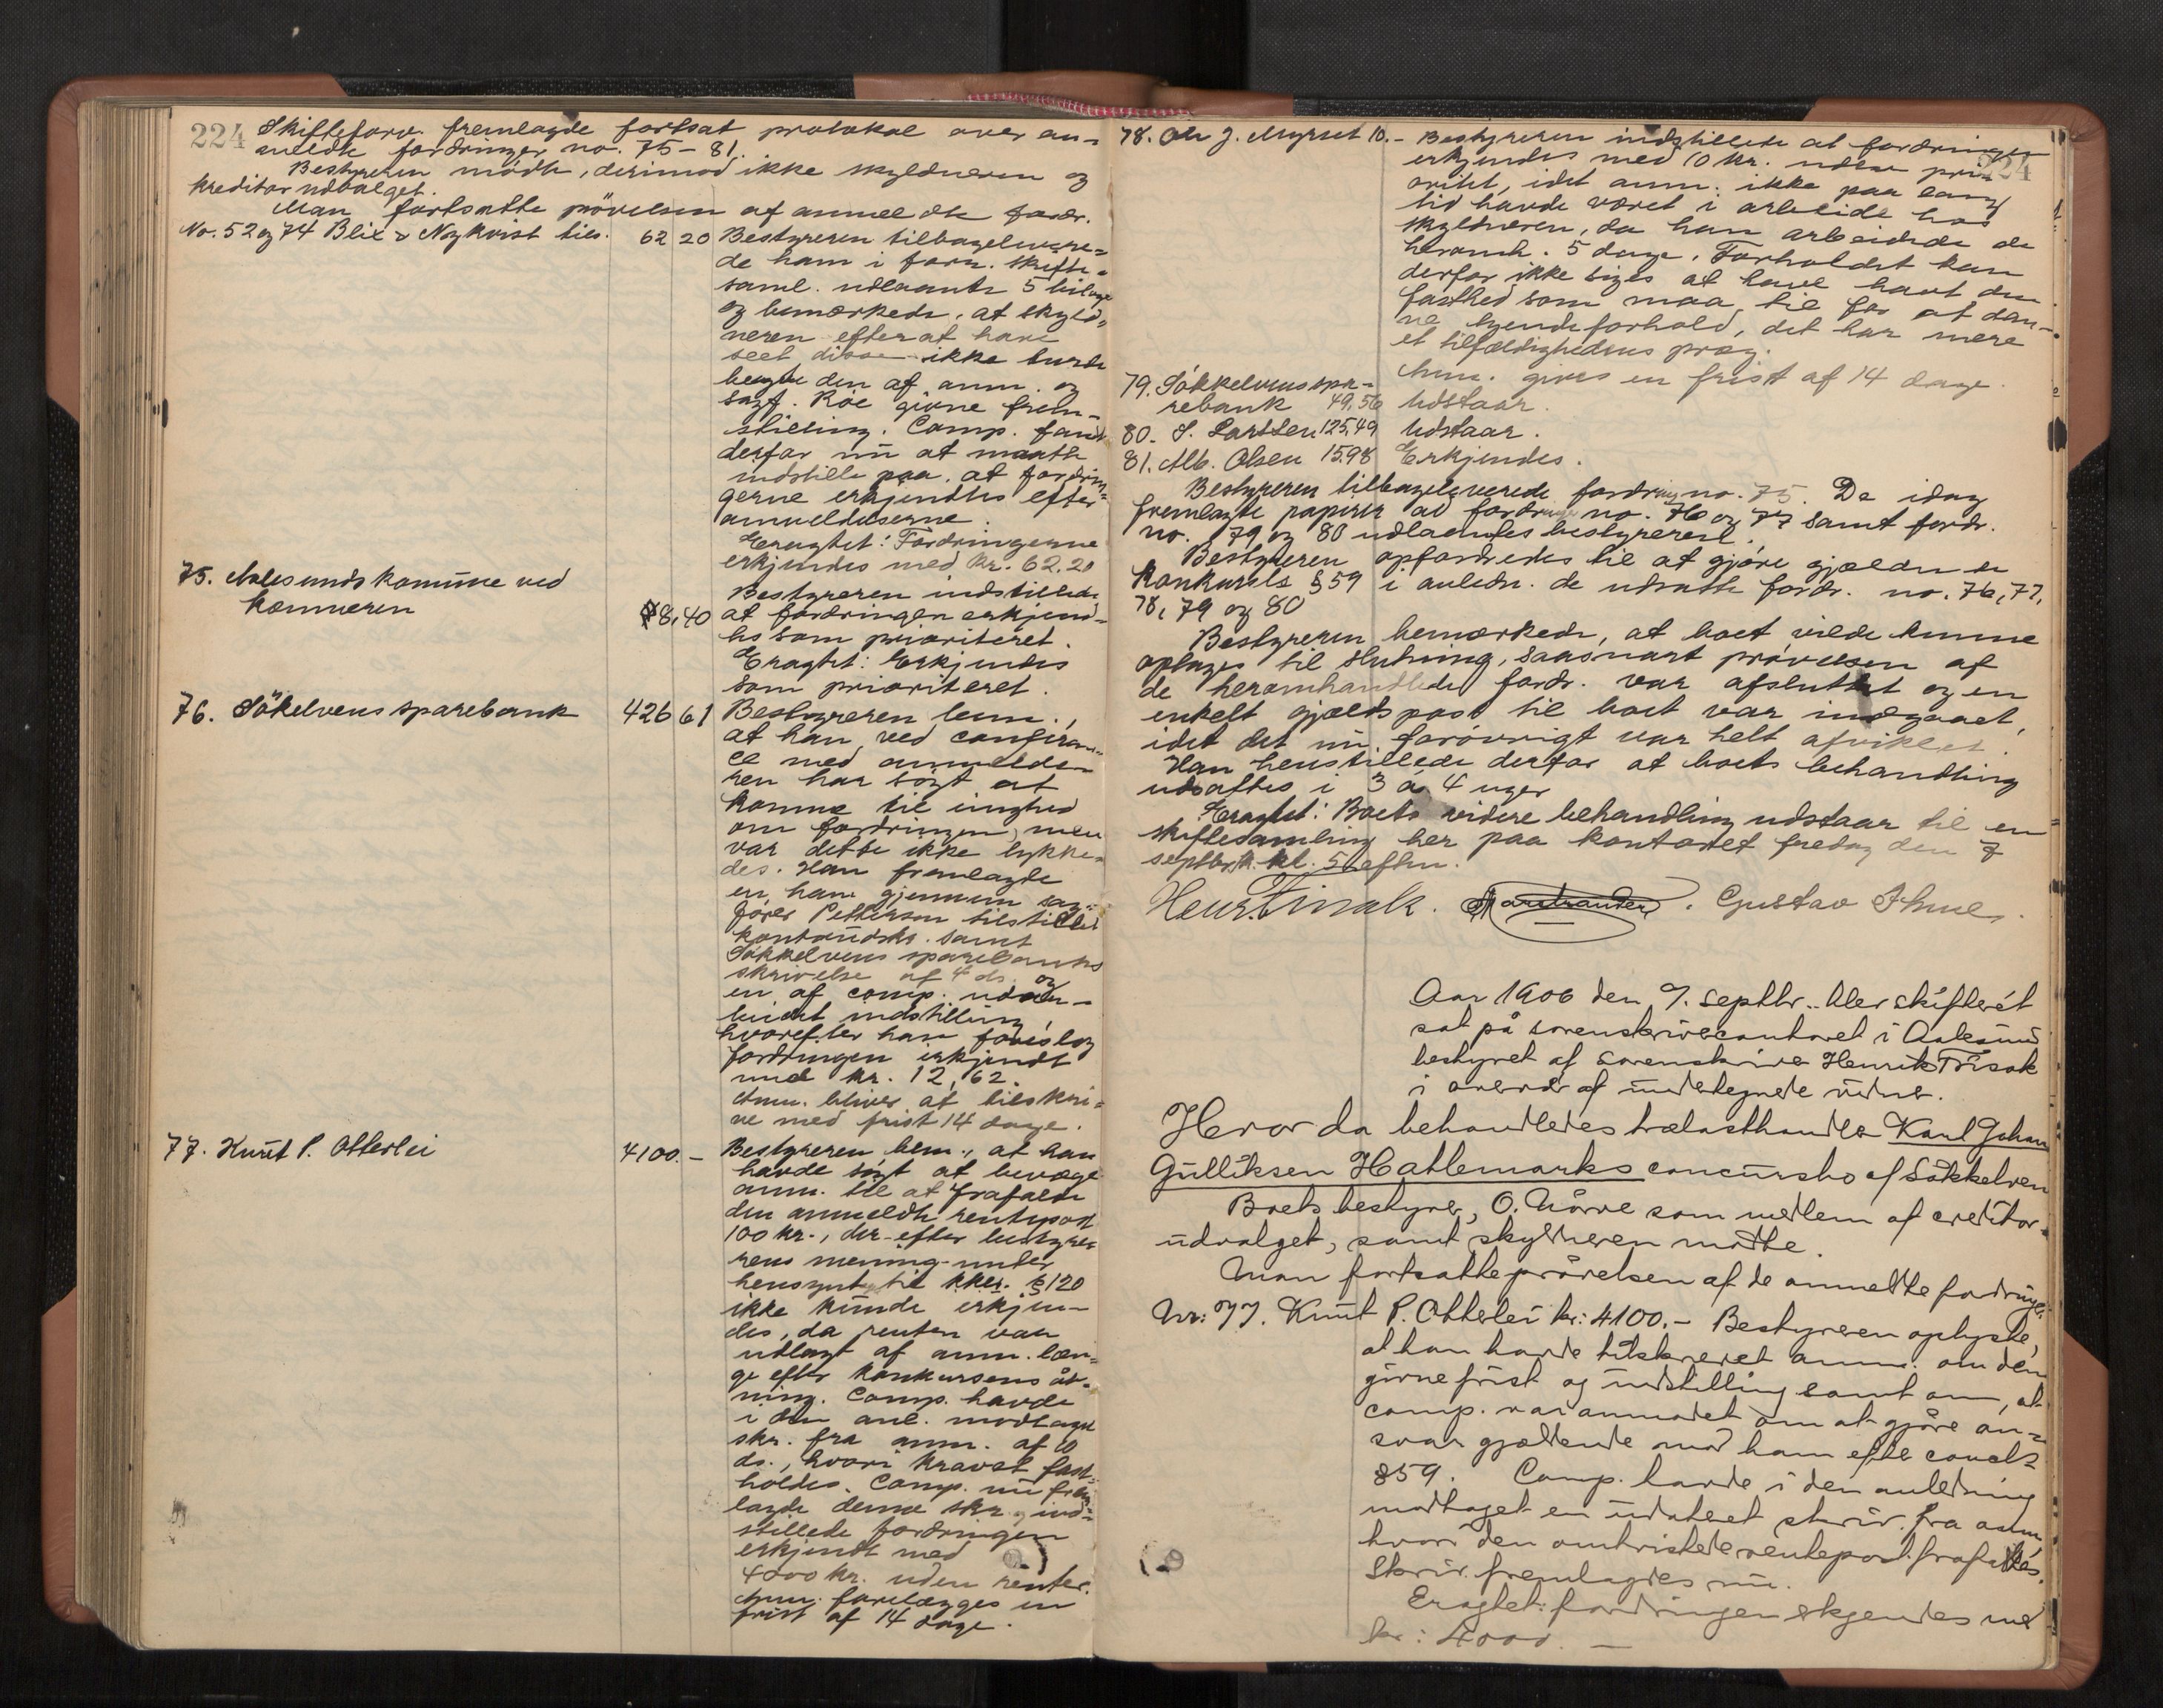 224 Skifteforv. fremlagde fortsat protokol over an-
meldte fordringer no. 75-81.
Bestyreren mödte, derimod ikke skyldneren og
kreditorudvalget.
Man fortsatte prövelsen af anmeldte fordr.
No. 52 og 74 Blix & Nykvist tils. 62 20 Bestyreren tilbageleverе-
de ham i forr. skifte-
saml. udlaante 5 bilage
og bemærkede, at skyld-
neren efterat have
seet disse ikke turde
benegte den af anm. og
sagf. Röe givne frem-
stilling. Comp. fandt
derfor nu at maatte
indstille paa, at fordrin-
gerne erkjendtes efter
anmeldelserne.
Eragtet: Fordringerne
erkjendes med kr. 62.20
75. Aalesunds kommune ved
kæmneren
Bestyreren indstillede
78,40 at fordringen erkjend-
tes som prioriteret.
Eragtet: Erkjendes
som prioriteret.
76. Sökelvens sparebank 426 61 Bestyreren bem.,
at han ved conferan-
ce med anmelde-
ren har sögt at
komme til enighed
om fordringen, men
var dette ikke lykke-
des. Han fremlagde
en ham gjennem sag-
förer Petterson tilstillet
kontoudskr. samt
Sökkelvens sparebanks
skrivelse af 4 ds. og
en af comp. udar-
beidet indstilling,
hvorefter han foreslog
fordringen erkjendt
med kr. 12,62.
Anm. bliver at tilskri-
ve med frist 14 dage.
77. Knut P. Otterlei 4100.- Bestyreren bem., at han
havde sögt at bevæge
anm. til at frafalde
den anmeldte rentepost
100 kr., der efter bestyre-
rens mening under
hensyn til kkl. § 120
ikke kunde erkjen-
des, da renten var
udlagt af anm. læn-
ge efter konkursens åb-
ning. Comp. havde
i den anl. modtaget
skr. fra anm. af 10
ds., hvori kravet fast-
holdes. Comp. nu frem-
lagde denne skr., ind-
stillede fordringen
erkjendt med
4000 kr. uden renter.
Anm. forelægges en
frist af 14 dage.
78. Ole J. Myrset 10.- Bestyreren indstillede at fordringen
224
erkjendes med 10 kr. uden pri-
oritet, idet anm. ikke paa lang
tid havde været i arbeide hos
skyldneren, da han arbeidede de
heromh. 5 dage. Forholdet kan
derfor ikke siges at have havt den
fasthed som maa til for at dan-
ne tyendeforhold, det har mere
et tilfældighedens præg.
Anm. gives en frist af 14 dage.
79. Sökkelvens spa-
rebank 49,56 Udstaar.
80. S. Larssen 125,49 Udstaar.
81. Alb. Olsen 15.98 Erkjendes.
Bestyreren tilbageleverede fordring no. 75. De idag
fremlagte papirer ad fordring no. 76 og 77 samt fordr.
no. 79 og 80 udlaantes bestyreren.
Bestyreren opfordredes til at gjöre gjældende
konkursls § 59 i anledn. de udsatte fordr. no. 76, 77,
78, 79 og 80
Bestyreren bemærkede, at boet vilde kunne
optages til slutning, saasnart prövelsen af
de heromhandlede fordr. var afsluttet og en
enkelt gjældspost til boet var indgaaet,
idet det nu forövrigt var helt afviklet.
Han henstillede derfor at boets behandling
udsattes i 3 à 4 uger
Eragtet: Boets videre behandling udstaar til en
skiftesamling her paa kontoret fredag den 7
septbr. kl. 5 eftm.
Henr. Finsak. Gustav Thues.
Aar 1906 den 7. septbr. blev skifteret
sat på sorenskrivercontoret i Aalesund
bestyret af sorenskriver Henrik Finsak
i overvær af undertegnede vidner.
Hvor da behandledes trælasthandler Karl Johan
Gulliksen Hatlemarks concursbo af Sökkelven
Boets bestyrer, O. Nörve som medlem af creditor-
udvalget, samt skyldneren mödte.
Man fortsatte prövelsen af de anmeldte fordringer
Nr: 77. Knut P. Otterlei kr: 4100.- Bestyreren oplyste,
at han havde tilskrevet anm. om den
givne frist og indstilling samt om, at
comp. var anmodet om at gjöre an-
svar gjældende mod ham efter concls
§59. Comp. havde i den anledning
modtaget en udateret skriv. fra anm.
hvori den omtvistede rentepost frafaldes.
Skriv. fremlagdes nu.
Eragtet: fordringen erkjendes med
kr: 4000.-